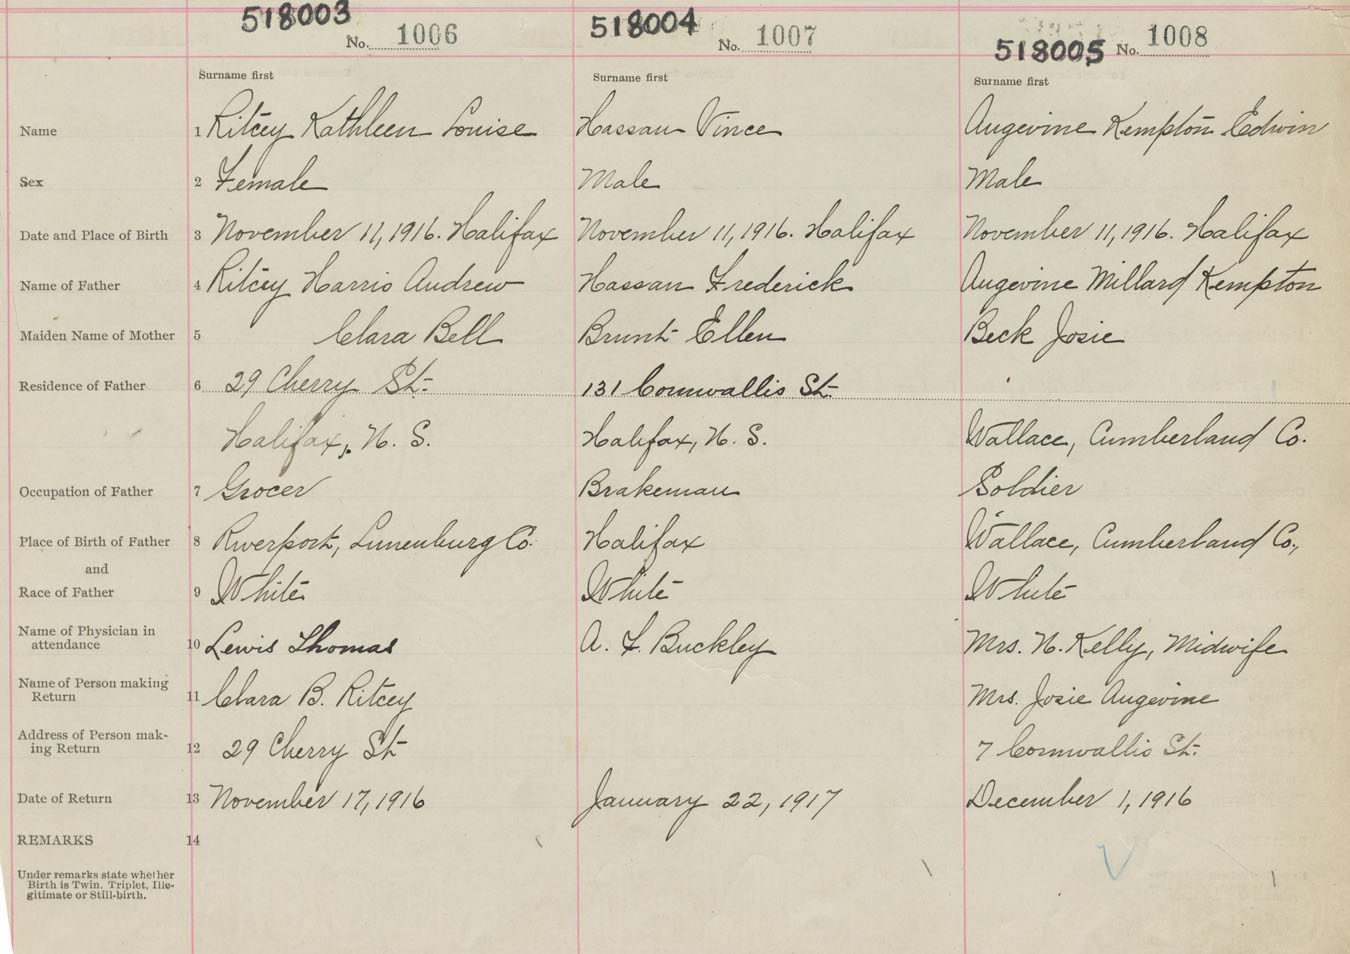 518003 No. 1006 518004 No. 1007 518005 No. 1008
Surname first Surname first Surname first
Name 1 Ritcey Kathleen Louise Hassan Vince Augevine Kempton Edwin
Sex 2 Female Male Male
Date and Place of Birth 3 November 11, 1916. Halifax November 11, 1916. Halifax November 11, 1916. Halifax
Name of Father 4 Ritcey Harris Andrew Hassan Frederick Augevine Millard Kempton
Maiden Name of Mother 5 Clara Bell Brunt Ellen Beck Josie
Residence of Father 6 29 Cherry St. 131 Cornwallis St.
Halifax, N. S. Halifax, N. S. Wallace, Cumberland Co.
Occupation of Father 7 Grocer Brakeman Soldier
Place of Birth of Father 8 Riverport, Lunenburg Co. Halifax Wallace, Cumberland Co.,
and
Race of Father 9 White White White
Name of Physician in
attendance 10 Lewis Thomas A. F. Buckley Mrs. N. Kelly, Midwife
Name of Person making
Return 11 Clara B. Ritcey Mrs. Josie Augevine
Address of Person mak-
ing Return 12 29 Cherry St 7 Cornwallis St.
Date of Return 13 November 17, 1916 January 22, 1917 December 1, 1916
REMARKS 14
Under remarks state whether
Birth is Twin, Triplet, Ille-
gitimate or Still-birth.